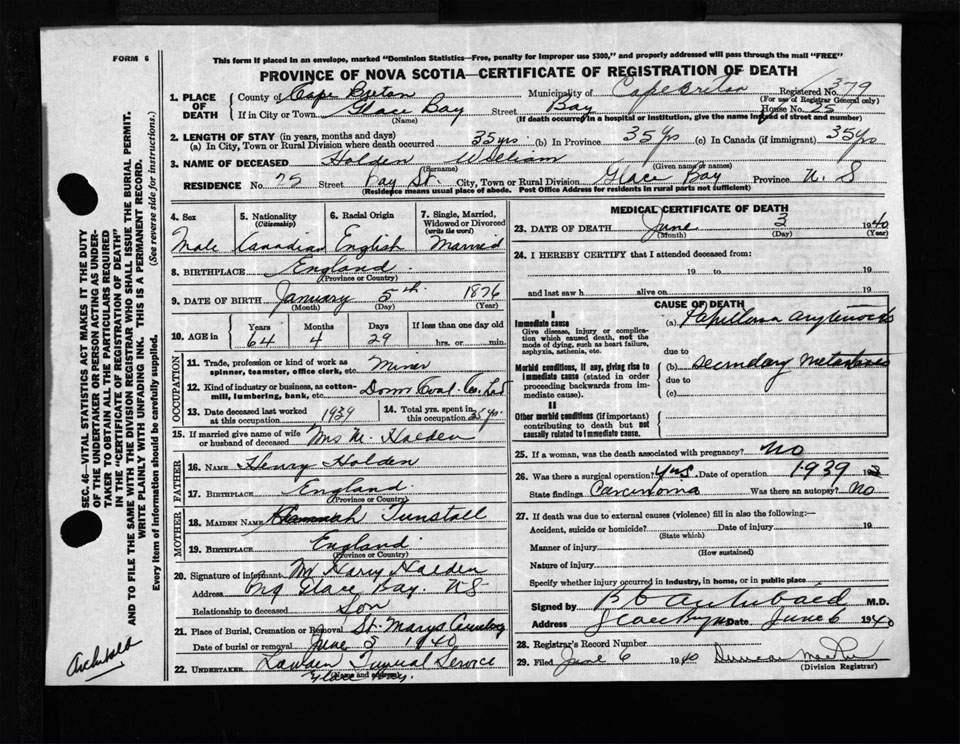 This form if placed in an envelope, marked "Dominion Statistics—Free, penalty for improper use $300," and properly addressed will pass through the mail "FREE"
FORM 6
PROVINCE OF NOVA SCOTIA—CERTIFICATE OF REGISTRATION OF DEATH
Registered No. 379
(For use of Registrar General only)
1. PLACE OF DEATH
County of Cape Breton Municipality of Cape Breton
If in City or Town Glace Bay Street Bay House No.
(Name) (If death occurred in a hospital or institution, give the name instead of street and number)
2. LENGTH OF STAY (in years, months and days)
(a) In City, Town or Rural Division where death occurred 35 yrs (b) In Province 35 yrs (c) In Canada (if immigrant) 35 yrs
3. NAME OF DECEASED Holden William
(Surname) (Given name or names)
RESIDENCE No. 75 Street Bay St. City, Town or Rural Division Glace Bay Province N. S
(Residence means usual place of abode. Post Office Address for residents in rural parts not sufficient)
4. Sex Male
5. Nationality (Citizenship) Canadian
6. Racial Origin English
7. Single, Married, Widowed or Divorced (write the word) Married
8. BIRTHPLACE England
(Province or Country)
9. DATE OF BIRTH January 5th 1876
(Month) (Day) (Year)
10. AGE in Years 64 Months 4 Days 29 If less than one day old hrs. or min.
OCCUPATION
11. Trade, profession or kind of work as spinner, teamster, office clerk, etc. Miner
12. Kind of industry or business, as cotton-mill, lumbering, bank, etc. Dom Coal Co. Ltd
13. Date deceased last worked at this occupation 1939
14. Total yrs. spent in this occupation 35 yrs.
15. If married give name of wife or husband of deceased Mrs M. Holden
FATHER
16. NAME Henry Holden
17. BIRTHPLACE England
(Province or Country)
MOTHER
18. MAIDEN NAME Hannah Tunstall
19. BIRTHPLACE England
(Province or Country)
20. Signature of informant Mr Harry Holden
Address Glace Bay. N S
Relationship to deceased Son
21. Place of Burial, Cremation or Removal St. Marys Cemetery
Date of burial or removal June 5 1940
22. UNDERTAKER Funeral Service
Glace Bay.
(Name and address)
MEDICAL CERTIFICATE OF DEATH
23. DATE OF DEATH June 3 1940
(Month) (Day) (Year)
24. I HEREBY CERTIFY that I attended deceased from:
19 to 19
and last saw h alive on 19
CAUSE OF DEATH
I
Immediate cause
Give disease, injury or complication which caused death, not the mode of dying, such as heart failure, asphyxia, asthenia, etc.
(a) Papilloma
due to
Morbid conditions, if any, giving rise to immediate cause (stated in order proceeding backwards from immediate cause).
(b) Secondary Metastases
due to
(c)
II
Other morbid conditions (if important) contributing to death but not causally related to immediate cause.
25. If a woman, was the death associated with pregnancy? No
26. Was there a surgical operation? Yes Date of operation 1939 19
State findings Carcinoma Was there an autopsy? No
27. If death was due to external causes (violence) fill in also the following:—
Accident, suicide or homicide? Date of injury 19
(State which)
Manner of injury
(How sustained)
Nature of injury
Specify whether injury occurred in industry, in home, or in public place
Signed by Archibald M.D.
Address Glace Bay NS Date June 6 1940
28. Registrar's Record Number
29. Filed June 6 1940
(Division Registrar)
SEC. 46—VITAL STATISTICS ACT MAKES IT THE DUTY
OF THE UNDERTAKER OR PERSON ACTING AS UNDER-
TAKER TO OBTAIN ALL THE PARTICULARS REQUIRED
IN THE "CERTIFICATE OF REGISTRATION OF DEATH"
AND TO FILE THE SAME WITH THE DIVISION REGISTRAR WHO SHALL ISSUE THE BURIAL PERMIT.
WRITE PLAINLY WITH UNFADING INK. THIS IS A PERMANENT RECORD.
Every item of information should be carefully supplied. (See reverse side for instructions.)
Archibald